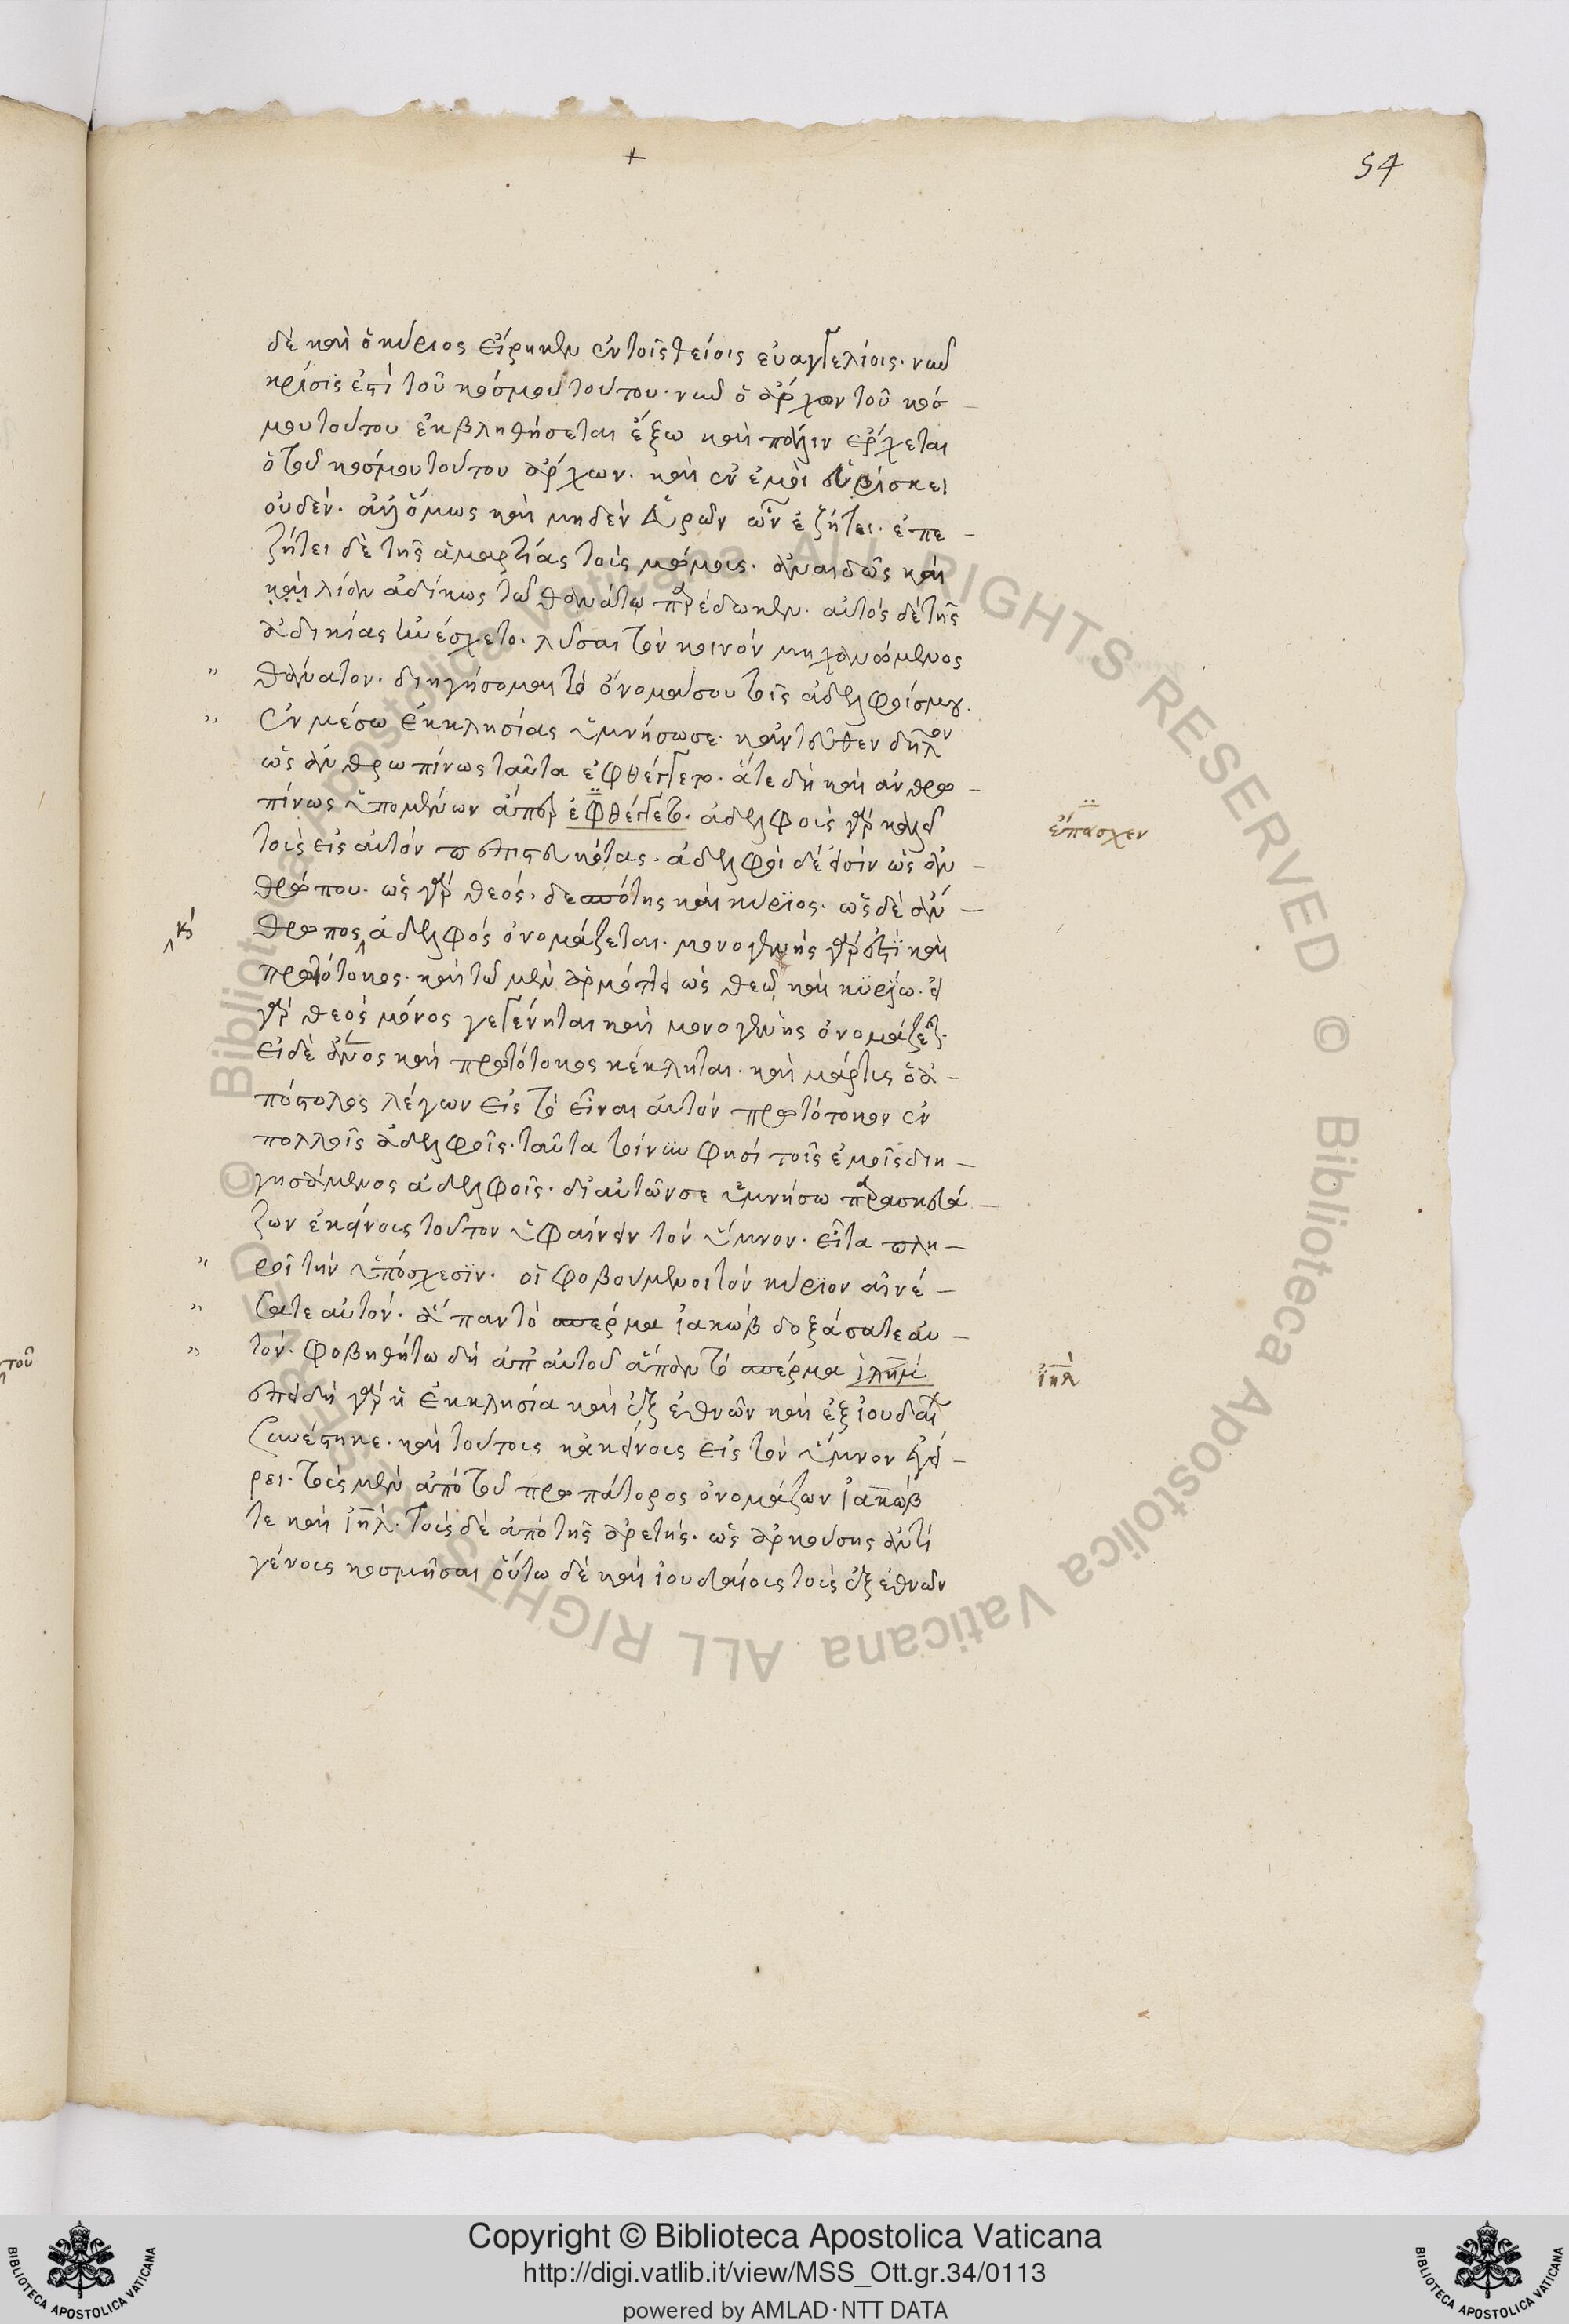 +
54
δὲ καὶ ὁ κύριος εἴρηκεν ἐν τοῖς θείοις εὐαγγελίοις· νῦν
κρίσις ἐστὶ τοῦ κόσμου τούτου· νῦν ὁ ἄρχων τοῦ κόσ-
μου τούτου ἐκβληθήσεται ἔξω καὶ πάλιν ἔρχεται
ὁ τοῦ κόσμου τούτου ἄρχων· καὶ ἐν ἐμοὶ εὑρίσκει
οὐδέν· ἀλλ' ὅμως καὶ μηδὲν εὑρὼν ὧν ἐζήτει· ἐπε-
ζήτει δὲ τῆς ἁμαρτίας τοὺς μώμους· ἀναιδῶς καὶ
καὶ λίαν ἀδίκως τῷ θανάτῳ παρέδωκεν· αὐτὸς δὲ τῆς
ἀδικίας ἠνέσχετο· λῦσαι τὸν κοινὸν μηχανώμενος
" θάνατον· διηγήσομαι τὸ ὄνομά σου τοῖς ἀδελφοῖς μου·
" ἐν μέσω ἐκκλησίας ὑμνήσω σε· κἀντεῦθεν δῆλον
ὡς ἀνθρωπίνως ταῦτα ἐφθέγγετο· ἅτε δὴ καὶ ἀνθρω-
πίνως ὑπομένων ἅπερ ἐφθέγγετο· ἀδελφοὺς γὰρ καλεῖ
ἔπασχεν
τοὺς εἰς αὐτὸν πεπιστευκότας· ἀδελφοὶ δέ εἰσιν ὡς ἀν-
θρώπου· ὡς γὰρ θεός· δεσπότης καὶ κύριος· ὡς δὲ ἄν-
θρωπος ἀδελφὸς ὀνομάζεται· μονογενὴς γάρ ἐστι καὶ
πρωτότοκος· καὶ τῷ μὲν ἁρμόττει ὡς θεῷ καὶ κυρίω· εἰ
γὰρ θεὸς μόνος γεγέννηται καὶ μονογενὴς ὀνομάζεται·
εἰ δὲ ἄνος καὶ πρωτότοκος κέκληται· καὶ μάρτυς ὁ ἀ-
πόστολος λέγων εἰς τὸ εἶναι αὐτὸν πρωτότοκον ἐν
πολλοῖς ἀδελφοῖς· ταῦτα τοίνυν φησὶ τοῖς ἐμοῖς διη-
γησάμενος ἀδελφοῖς· δι' αὐτῶν σε ὑμνήσω παρασκευά-
ζων ἐκείνοις τοῦτον ὑφαίνειν τὸν ὕμνον· εἶτα πλη-
" ροῖ τὴν ὑπόσχεσιν· οἱ φοβούμενοι τὸν κύριον αἰνέ-
" σατε αὐτόν· ἅπαν τὸ σπέρμα ἰακὼβ δοξάσατε αὐ-
" τόν· φοβηθήτω δὴ ἀπ' αὐτοῦ ἅπαν τὸ σπέρμα ἰλημ
ἰηλ
ἐπειδὴ γὰρ ἡ ἐκκλησία καὶ ἐξ ἐθνῶν καὶ ἐξ ἰουδαί
συνέστηκε· καὶ τούτους κἀκείνους εἰς τὸν ὕμνον ἐγεί-
ρει· τοὺς μὲν ἀπὸ τοῦ προπάτορος ὀνομάζων ἰακώβ
τε καὶ ἰηλ· τοὺς δὲ ἀπὸ τῆς ἀρετῆς· ὡς ἀρκούσης ἀντὶ
γένους κοσμῆσαι οὕτω δὲ καὶ ἰουδαίοις τοὺς ἐξ ἐθνῶν
τοῦ
© Biblioteca Apostolica Vaticana ALL RIGHTS RESERVED
Copyright © Biblioteca Apostolica Vaticana
http://digi.vatlib.it/view/MSS_Ott.gr.34/0113
powered by AMLAD·NTT DATA
BIBLIOTECA APOSTOLICA VATICANA
BIBLIOTECA APOSTOLICA VATICANA